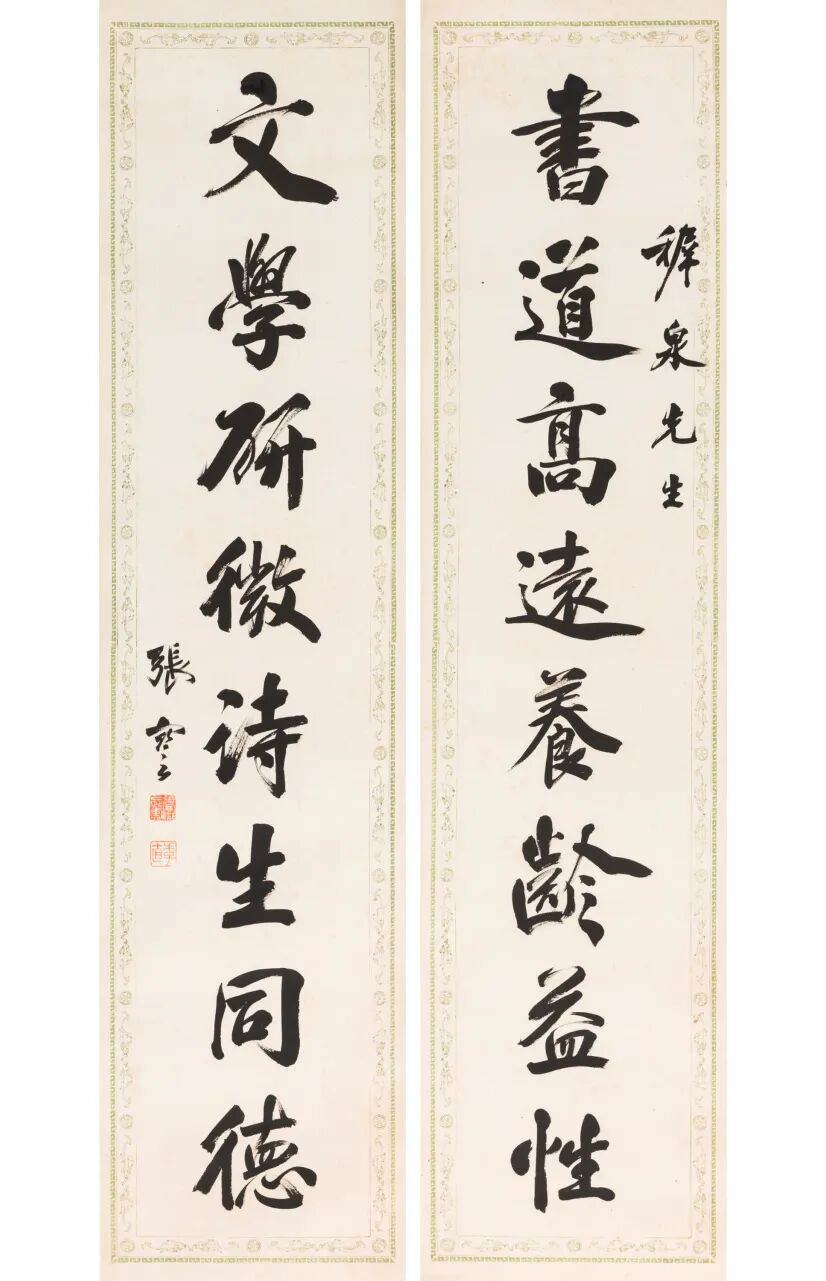 書道高遠養齡益性
穉泉先生
文學研微詩生同德
張謇
季直